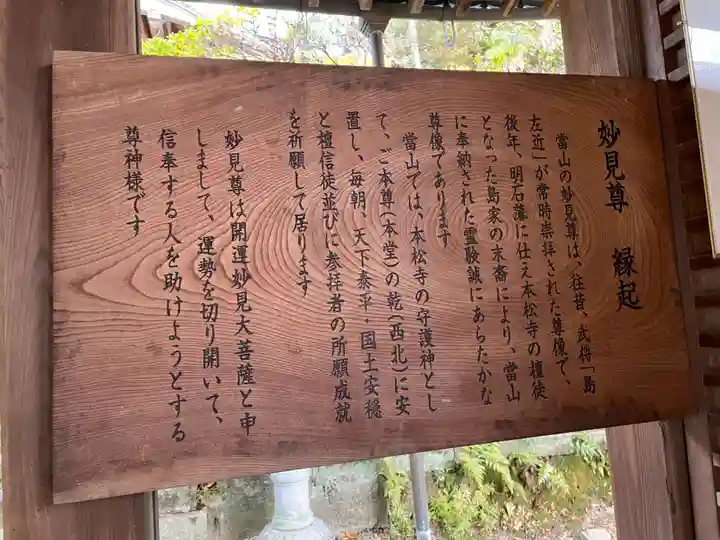 妙見尊　縁起
當山の妙見尊は、往昔、武将「島
左近」が常時崇拝された尊像で、
後年、明石藩に仕え本松寺の檀徒
となった島家の末裔により、當山
に奉納された霊験誠にあらたかな
尊像であります
當山では、本松寺の守護神とし
て、ご本尊(本堂)の乾(西北)に安
置し、毎朝、天下泰平・国土安穏
と檀信徒並びに参拝者の所願成就
を祈願して居ります
妙見尊は開運妙見大菩薩と申
しまして、運勢を切り開いて、
信奉する人を助けようとする
尊神様です